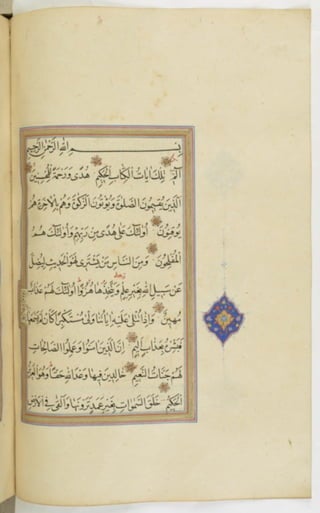 بسم الله الرحمن الرحيم
الم تلك آيات الكتاب الحكيم هدى ورحمة للمحسنين
الذين يقيمون الصلوة ويؤتون الزكوة وهم بالآخرة هم
يوقنون أولئك على هدى من ربهم وأولئك هم
المفلحون ومن الناس من يشتري لهو الحديث ليضل
عن سبيل الله بغير علم ويتخذها هزوا أولئك لهم عذاب
مهين وإذا تتلى عليه آياتنا ولى مستكبرا كأن لم يسمعها
فبشره بعذاب أليم إن الذين آمنوا وعملوا الصالحات
لهم جنات النعيم خالدين فيها وعد الله حقا وهو العزيز
الحكيم خلق السموات بغير عمد ترونها وألقى في الأرض